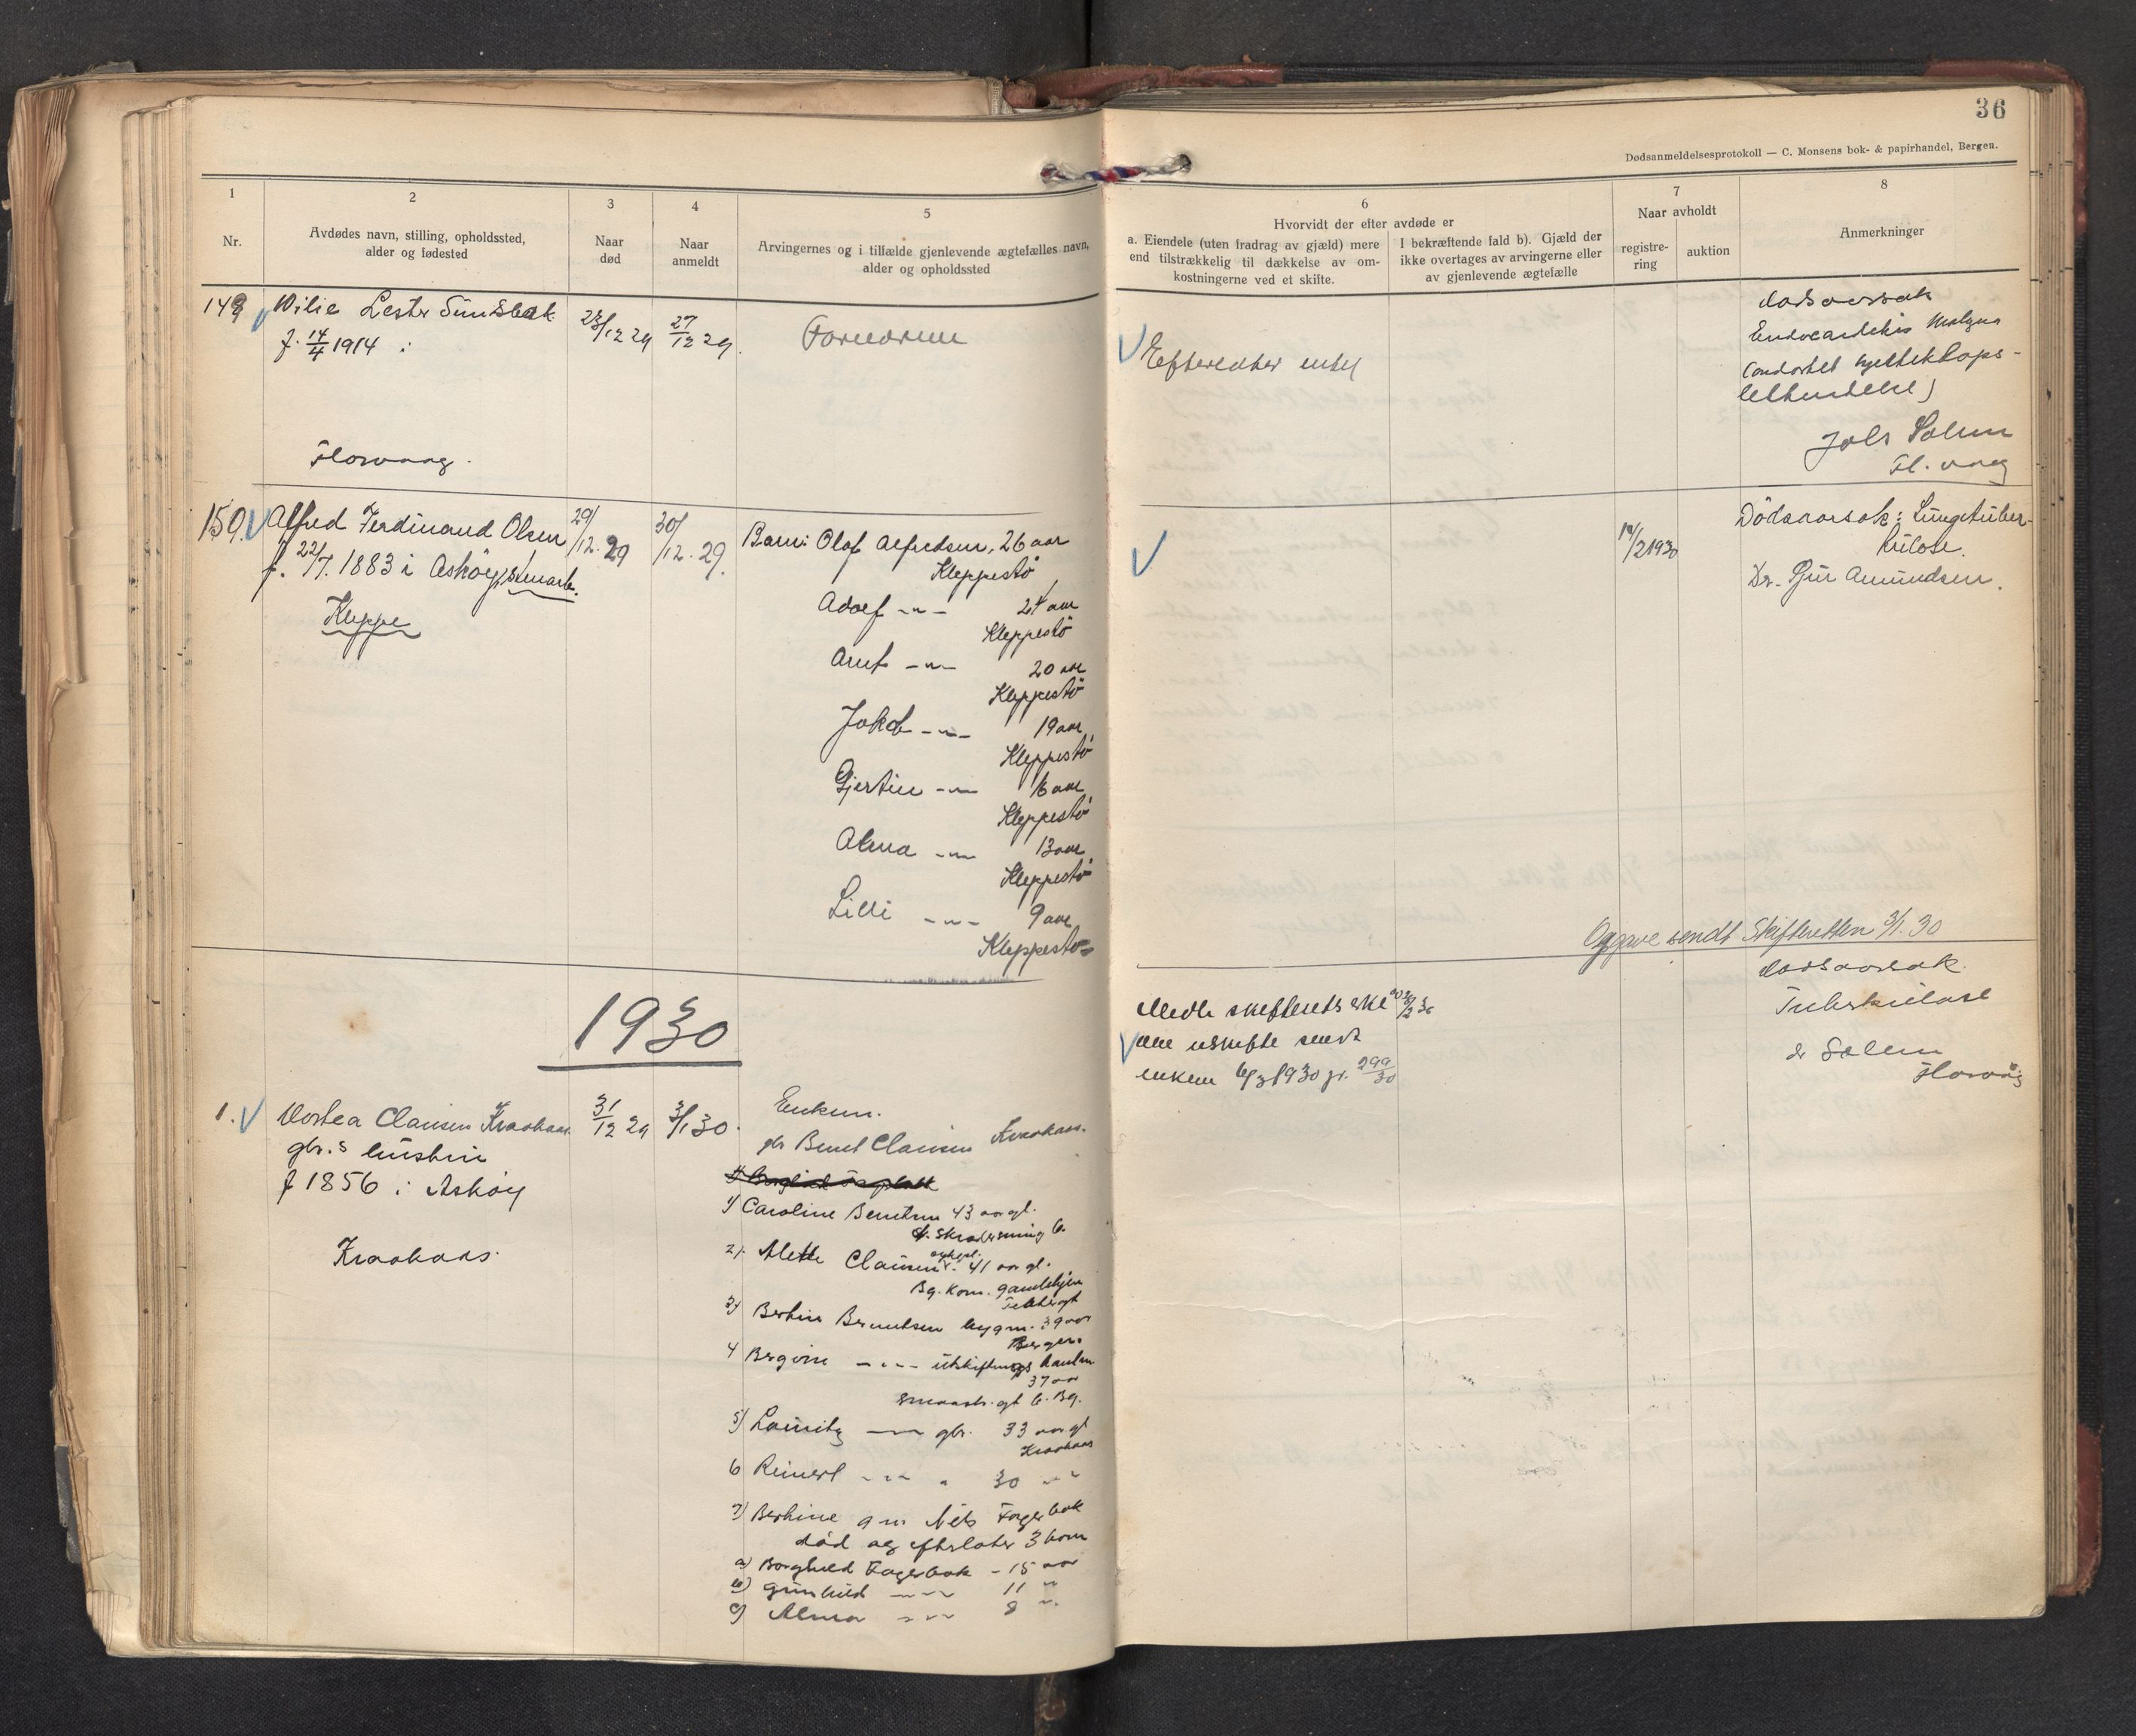 36
Dødsanmeldelsesprotokoll — C. Monsens bok- & papirhandel, Bergen.
1
Nr.
2
Avdødes navn, stilling, opholdssted,
alder og fødested
3
Naar
død
4
Naar
anmeldt
5
Arvingernes og i tilfælde gjenlevende ægtefælles navn,
alder og opholdssted
6
Hvorvidt der efter avdøde er
a. Eiendele (uten fradrag av gjæld) mere
end tilstrækkelig til dækkelse av om-
kostningerne ved et skifte.
I bekræftende fald b). Gjæld der
ikke overtages av arvingerne eller
av gjenlevende ægtefælle
7
Naar avholdt
registre-
ring
auktion
8
Anmerkninger
149
Wilie Lester
f. 14/4 1914 i
Florvaag.
12 29
27/12 29.
Forældrene
Efterlater intet
Dødsaarsak
Endocarditis
(ondartet
Solem
Fl. vaag
150.
Alfred Ferdinand Olsen
f. 22/7. 1883 i Askøy,
Kleppe
29/12. 29
30/12. 29.
Barn: Olaf Alfredsen, 26 aar
Kleppestø
Adolf -"- 24 aar
Kleppestø
Arnt -"- 20 aar
Kleppestø
Jakob -"- 19 aar
Kleppestø
Gjertine -"- 16 aar
Kleppestø
Alma -"- 13 aar
Kleppestø
Lilli -"- 9 aar
Kleppestø
/2 1930
Dödsaarsak: Lungetuber-
kulose.
Dr. Amundsen.
Opgave sendt Skifteretten 3/1. 30
1930
1.
Dortea Clausen Kraakaas
gbr.s hustru
f 1856 i Askøy
Kraakaas.
31/12 29
3/1 30.
Enkem.
gbr Bernt Clausen Kraakaas.
1) Caroline Berntsen 43 aar gl.
2) Alette Clausen 41 aar gl.
Bg. kom. gamlehjem
3) Bertin Berntsen bygm. 39 aar
Bergen
4 Bergine -"-
37 aar
gt 6. Bg.
5) Lauritz -"- gbr. 33 aar gl
Kraakaas
6 Reinert -"- " 30 " "
7) Berthine gm. Nils Fagerbak
död og efterlater 3 barn
a) Borghild Fagerbak - 15 aar
b) Gunhild -"- 11 "
c) Alma -"- 8 "
om uskifte sendt
enkem 6/3 1930 jr. 299/30
Dødsaarsak
Tuberkulose
dr Solem
Florvåg